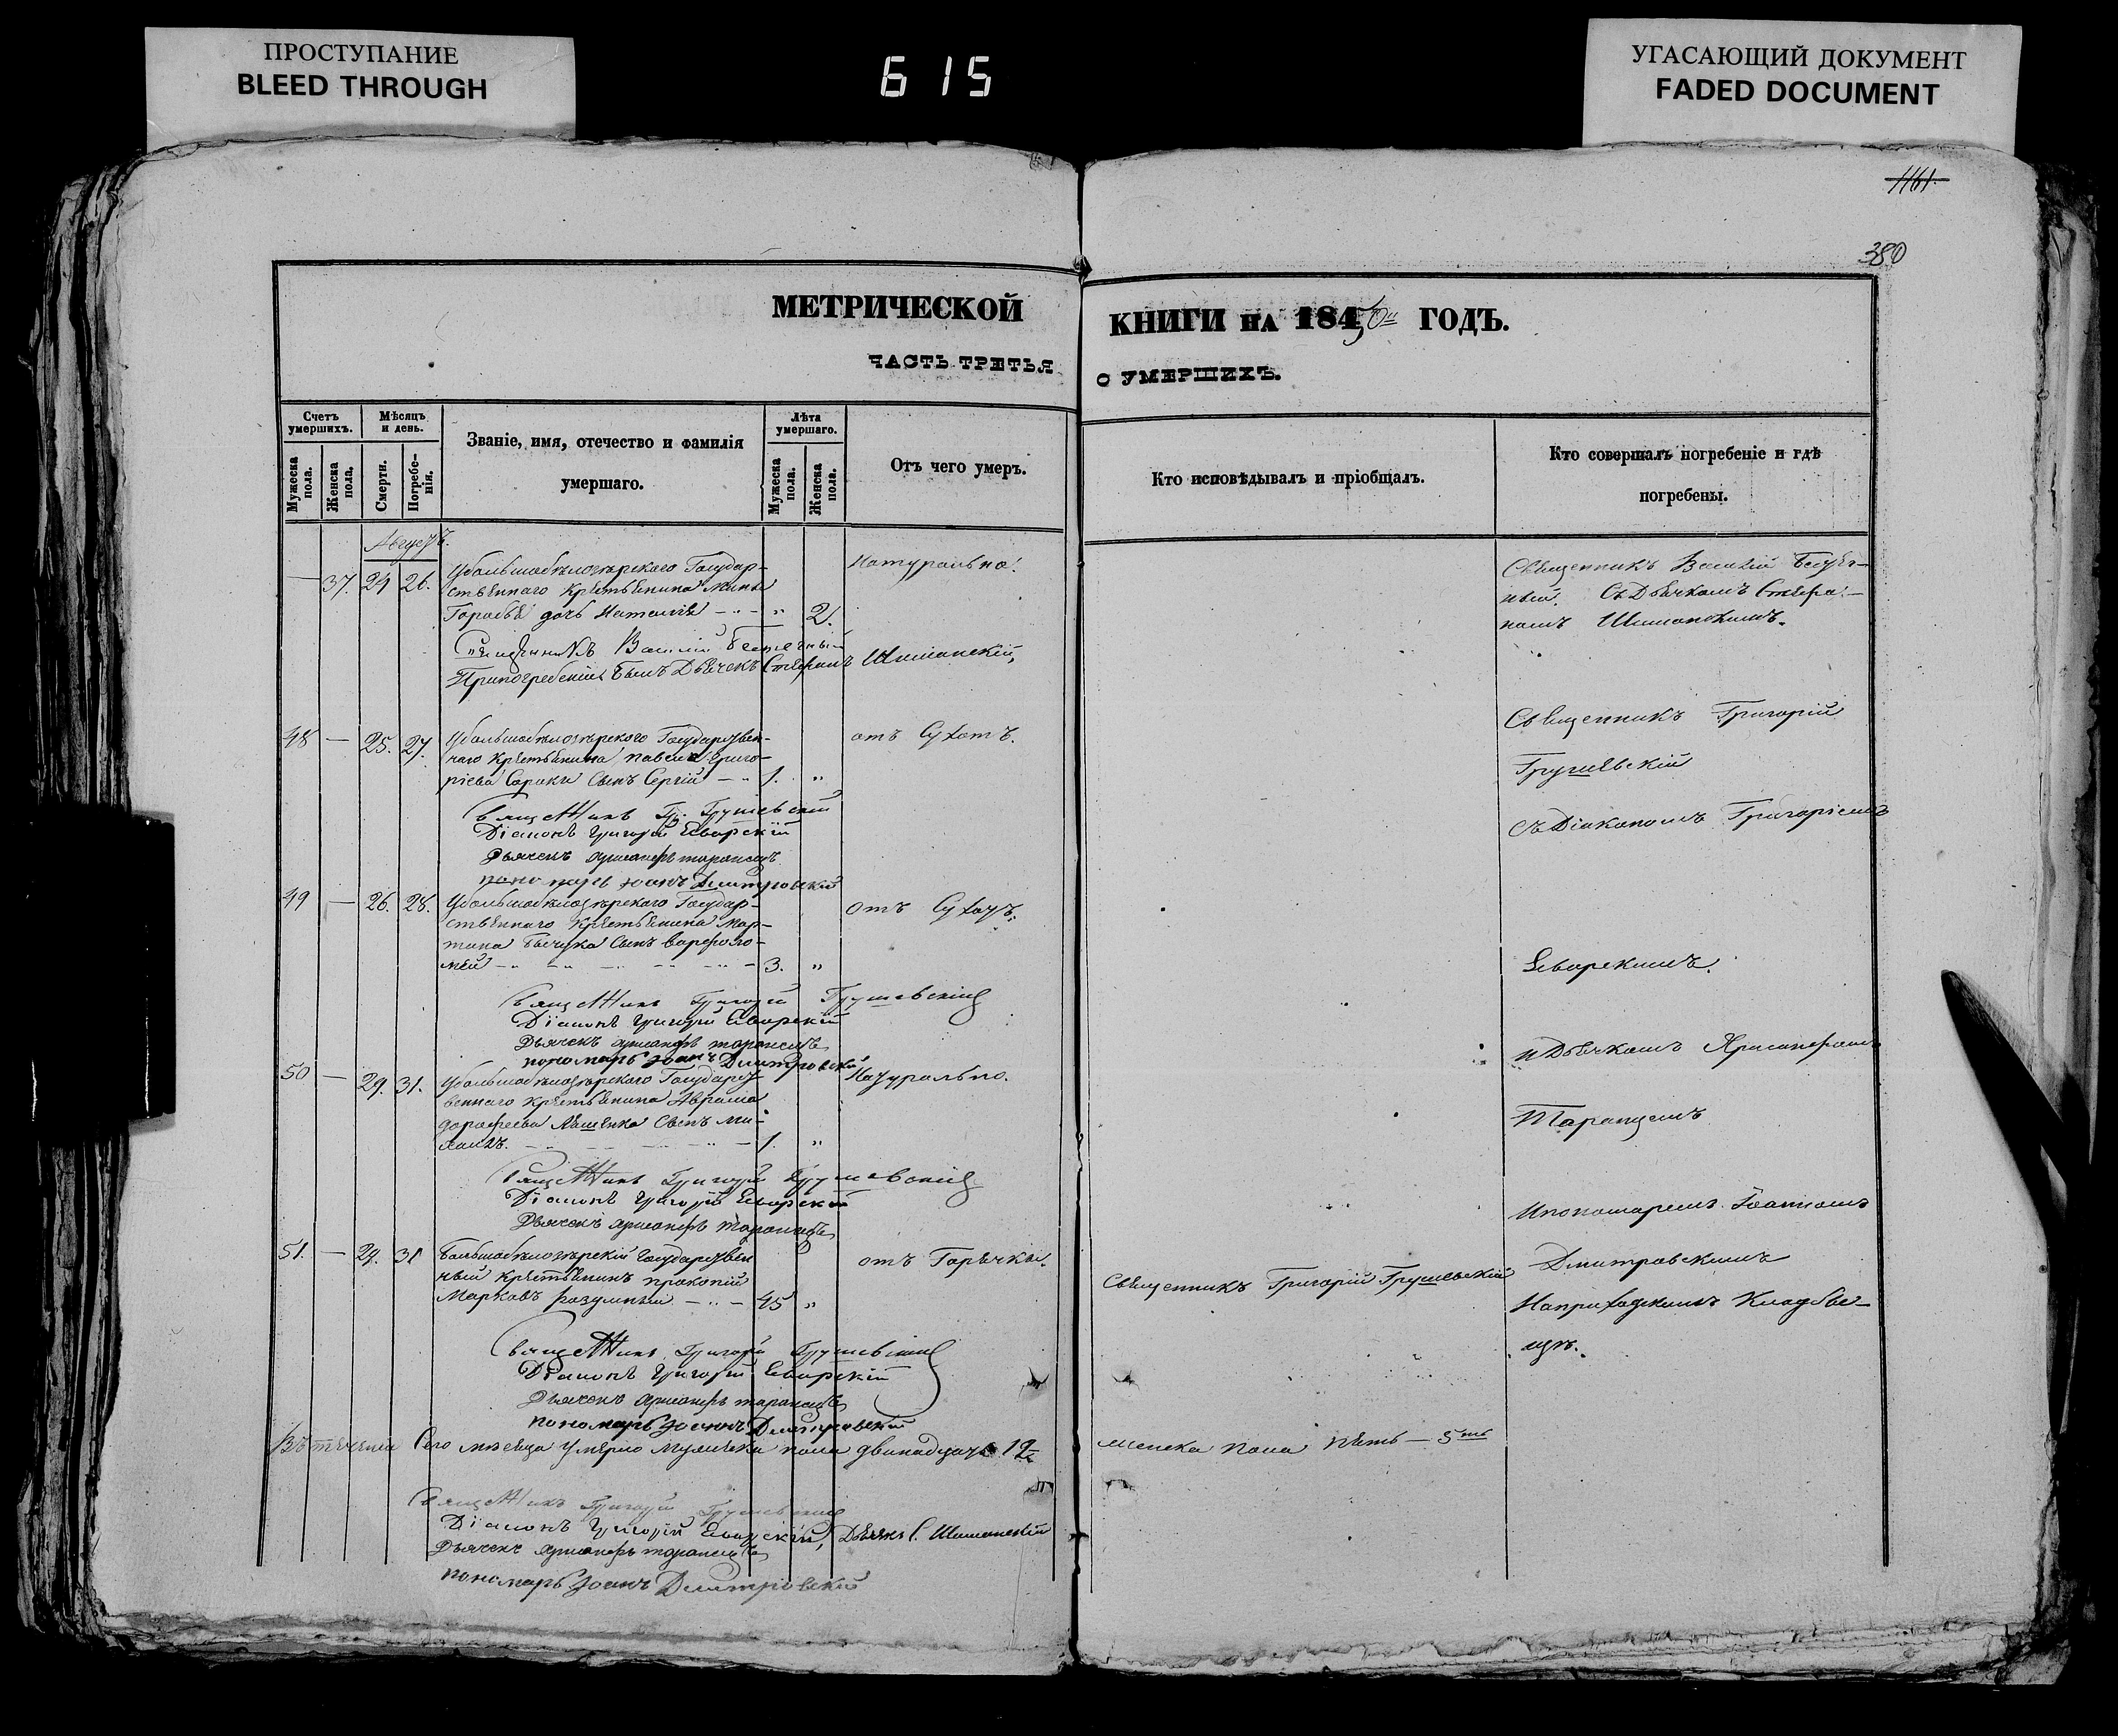 ПРОСТУПАНИЕ
BLEED THROUGH
615
УГАСАЮЩИЙ ДОКУМЕНТ
FADED DOCUMENT
1161.
380
МЕТРИЧЕСКОЙ
КНИГИ НА 1850 ГОДЪ.
ЧАСТЬ ТРЕТЬЯ
О УМЕРШИХЪ.
Счетъ умершихъ.
Мужеска пола.
Женска пола.
Мѣсяцъ и день.
Смерти.
Погребенія.
Званіе, имя, отечество и фамилія
умершаго.
Лѣта умершаго.
Мужеска пола.
Женска пола.
Отъ чего умеръ.
Кто исповѣдывалъ и пріобщалъ.
Кто совершалъ погребеніе и гдѣ
погребены.
Августъ.
— 37. 24 26. Убольшобѣлозѣрского Государ-
ственнаго крестьянина
дочь Наталія — " — " 2.
Натурально.
Священникъ Василій
Съ Дьячкомъ Стефа-
номъ Шиманскимъ.
Священникъ Василій
Припогребеніи былъ Дьячекъ Стефанъ Шиманскій,
48 — 25. 27. Убольшобѣлозѣрского Государствен-
наго крестьянина Павла Григо-
ріева Сороки Сынъ Сергій — " 1. "
отъ Сухотъ.
Священникъ Григорій
Грушевскій
Священникъ Гр. Грушевскій
Діаконъ Григорій Яворскій
Дьячекъ таранецъ
пономарь Іоанъ Дмитровскій
съ Діакономъ Григоріемъ
49 — 26. 28. Убольшобѣлозѣрского Государ-
ственнаго крестьянина Мар-
тина Бычука Сынъ Варфоло-
мей — 3. "
отъ Сухотъ.
Яворскимъ.
Священникъ Григорій Грушевскій
Діаконъ Григорій Яворскій
Дьячекъ таранецъ
пономарь Іоанъ Дмитровскій
и Дьячкомъ
50 — 29. 31. Убольшобѣлозѣрского Государст-
веннаго крестьянина Аврама
дорофеева Ляшенка Сынъ Ми-
хаилъ. — 1. "
Натурально.
Таранцемъ
Священникъ Григорій Грушевскій
Діаконъ Григорій Яворскій
Дьячекъ таранецъ
Ипономаремъ Іоанномъ
51. — 29. 31 Большобѣлозѣрскій государствен
ный крестьянинъ прокопій
Марковъ разумный — " — 45 "
отъ Горячки.
Священникъ Григорій Грушевскій
Дмитровскимъ
Наприходскомъ Кладби-
щѣ.
Священникъ Григорій Грушевскій
Діаконъ Григорій Яворскій
Дьячекъ таранецъ
пономарь Іоанъ Дмитровскій
Въ теченіи Сего мѣсяца Умерло Мужеска пола двинадцать 12
женска пола пять — 5ть
Священникъ Григорій Грушевскій
Діаконъ Григорій Яворскій, Дьячекъ С. Шиманскій
Дьячекъ таранецъ
пономарь Іоанъ Дмитровскій